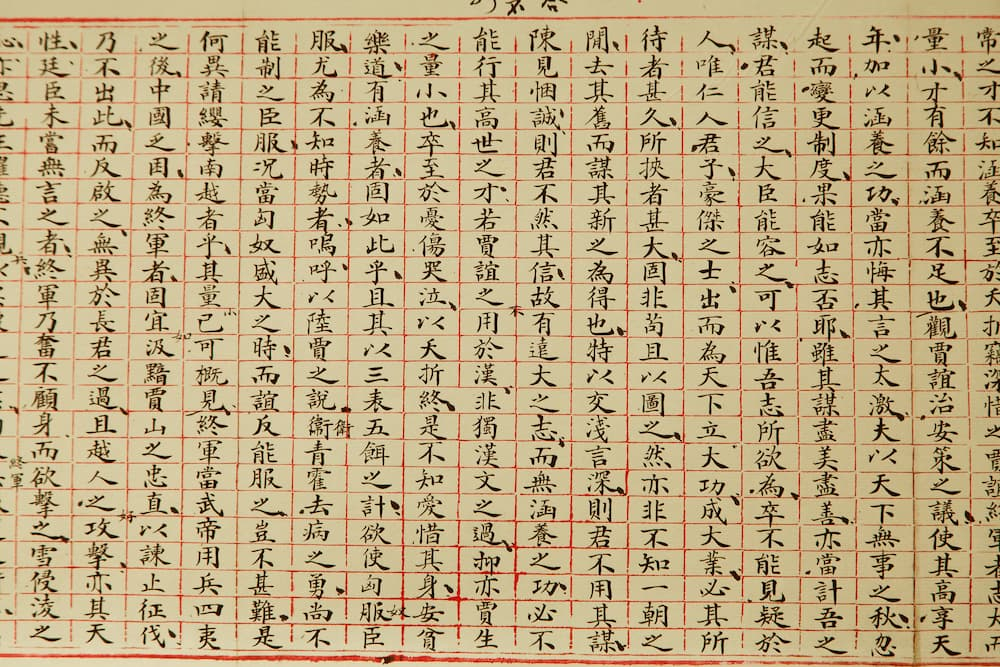 常之才不知涵養卒至於夭折竊深惜之賈誼終軍者志大而
量小才有餘而涵養不足也觀賈誼治安策之議使其高享天
年加以涵養之功當亦悔其言之太激夫以天下無事之秋忽
起而變更制度果能如志否耶雖其謀盡美盡善亦當計吾之
謀君能信之大臣能容之可以惟吾志所欲為卒不能見疑於
人唯仁人君子豪傑之士出而為天下立大功成大業必其所
待者甚久所挾者甚大固非苟且以圖之然亦非不知一朝之
閒去其舊而謀其新之為得也特以交淺言深則君不用其謀
陳見悃誠則君不然其信故有遠大之志而無涵養之功必不
能行其高世之才若賈誼之不用於漢非獨漢文之過抑亦賈生
之量小也卒至於憂傷哭泣以夭折終是不知愛惜其身安貧
樂道有涵養者固如此乎且其以三表五餌之計欲使匈奴服臣
服尤為不知時勢者嗚呼以陸賈之說衛青霍去病之勇尚不
能制之臣服況當匈奴威大之時而誼反能服之豈不甚難是
何異請纓擊南越者乎其量小已可概見終軍當武帝用兵四夷
之後中國乏困為終軍者固宜如汲黯賈山之忠直以諫止征伐
乃不出此而反啟之無異於長君之過且越人之好攻擊亦其天
性廷臣未嘗無言之者終軍乃奮不顧身而欲擊之雪侵淩之